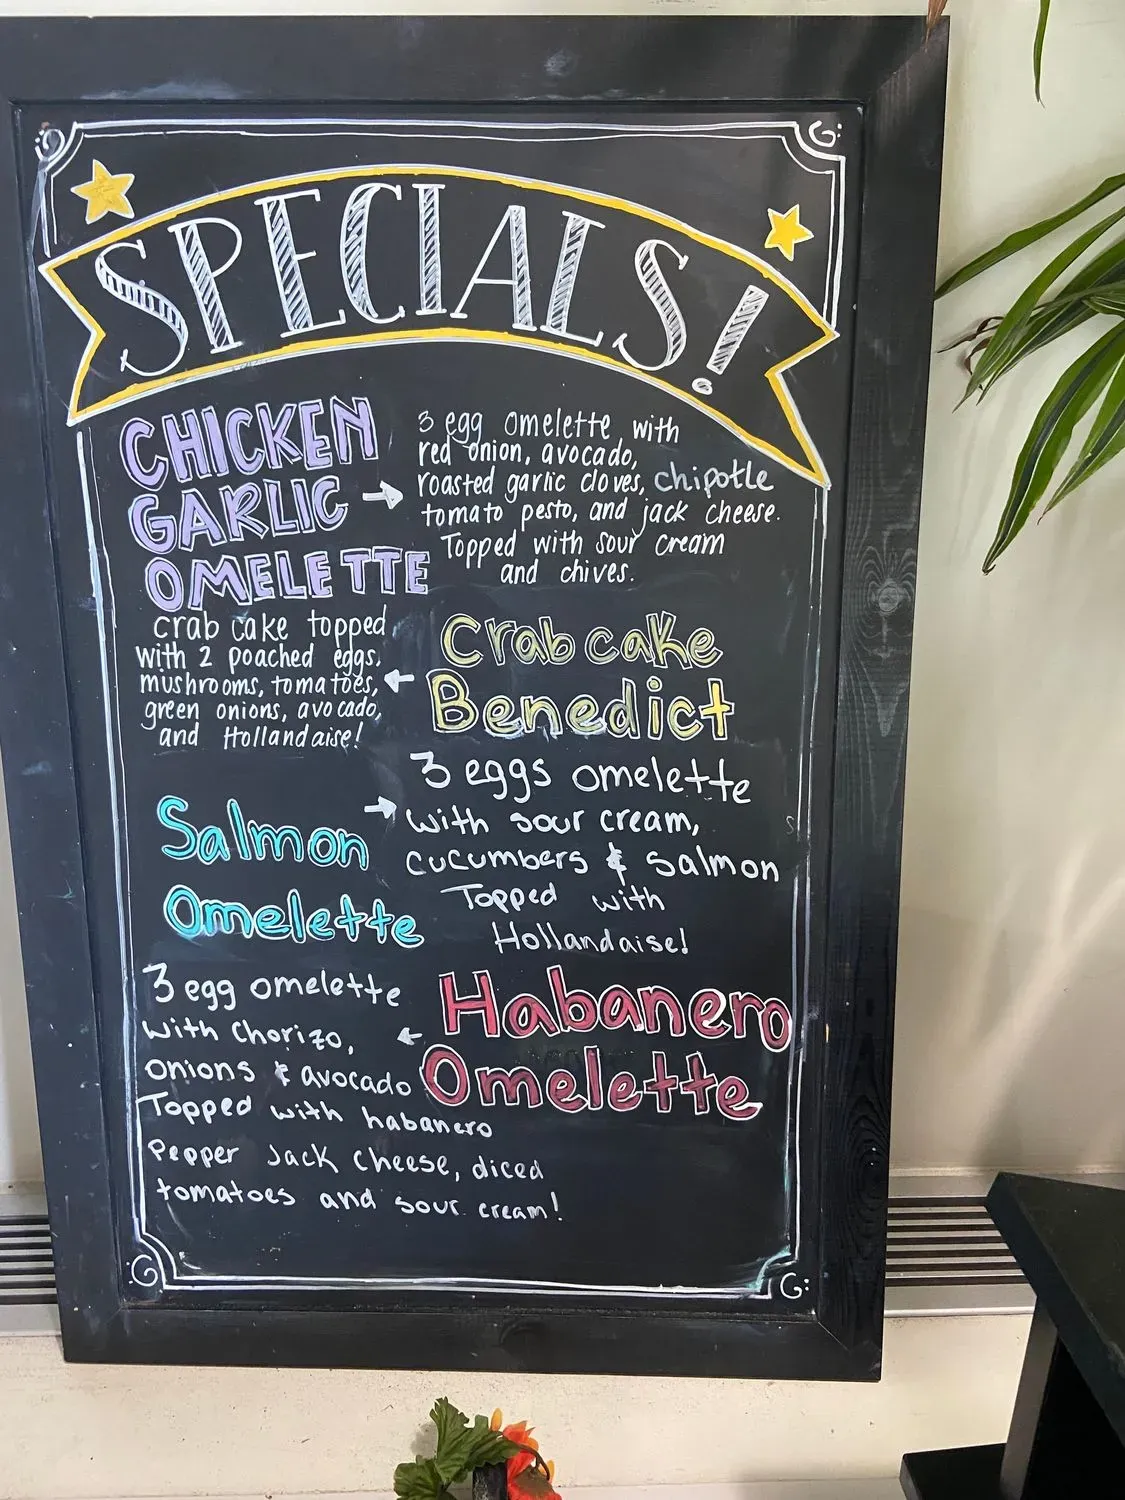 SPECIALS!
CHICKEN
GARLIC
OMELETTE
3 egg omelette with
red onion, avocado,
roasted garlic cloves, chipotle
tomato pesto, and jack cheese.
Topped with sour cream
and chives.
Crab cake
Benedict
crab cake topped
with 2 poached eggs,
mushrooms, tomatoes,
green onions, avocado,
and Hollandaise!
Salmon
Omelette
3 eggs omelette
with sour cream,
cucumbers & salmon
Topped with
Hollandaise!
Habanero
Omelette
3 egg omelette
with Chorizo,
onions & avocado
Topped with habanero
Pepper Jack Cheese, diced
tomatoes and sour cream!